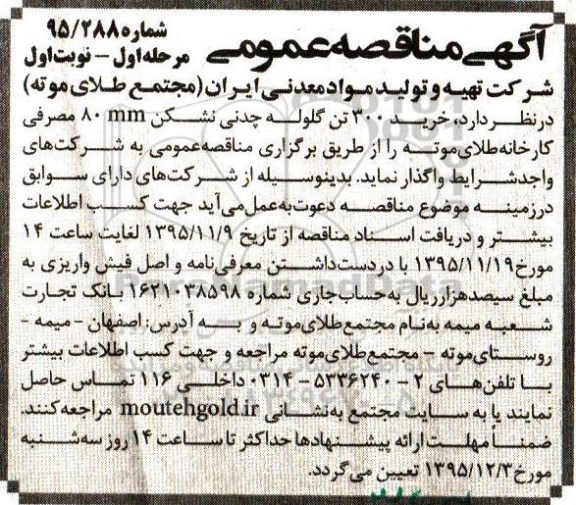 آگهی مناقصه عمومی
شماره ۹۵/۲۸۸
مرحله اول – نوبت اول
شرکت تهیه و تولید مواد معدنی ایران (مجتمع طلای موته)
درنظر دارد، خرید ۳۰۰ تن گلوله چدنی نشکن ۸۰ mm مصرفی
کارخانه طلای موته را از طریق برگزاری مناقصه عمومی به شرکت‌های
واجد شرایط واگذار نماید. بدینوسیله از شرکت‌های دارای سوابق
درزمینه موضوع مناقصه دعوت به عمل می‌آید جهت کسب اطلاعات
بیشتر و دریافت اسناد مناقصه از تاریخ ۱۳۹۵/۱۱/۹ لغایت ساعت ۱۴
مورخ ۱۳۹۵/۱۱/۱۹ با دردست داشتن معرفی‌نامه و اصل فیش واریزی به
مبلغ سیصدهزار ریال به حساب جاری شماره ۱۶۳۱۰۳۸۵۹۸ بانک تجارت
شعبه میمه به نام مجتمع طلای موته و به آدرس: اصفهان – میمه –
روستای موته – مجتمع طلای موته مراجعه و جهت کسب اطلاعات بیشتر
با تلفن‌های ۲ – ۵۳۳۶۲۴۰ – ۰۳۱۴ داخلی ۱۱۶ تماس حاصل
نمایند یا به سایت مجتمع به نشانی moutehgold.ir مراجعه کنند.
ضمناً مهلت ارائه پیشنهادها حداکثر تا ساعت ۱۴ روز سه‌شنبه
مورخ ۱۳۹۵/۱۲/۳ تعیین می‌گردد.
ParsNamadData